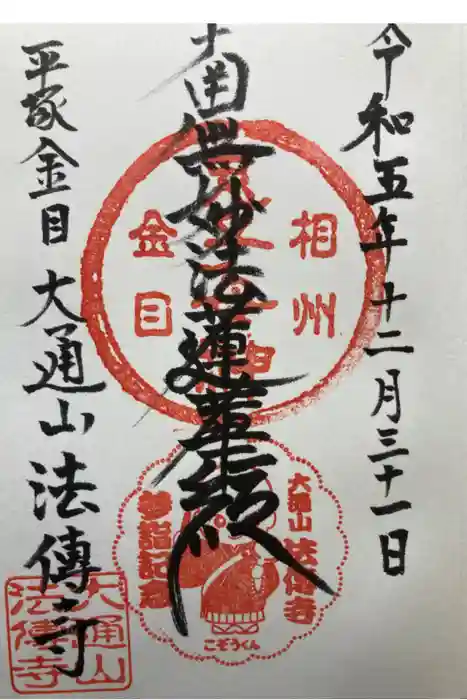 令和五年十二月三十一日
南無妙法蓮華経
平塚金目大通山法傳寺
相州
金目
大通山法傳寺
参詣記念
こぞうくん
大通山
法傳寺